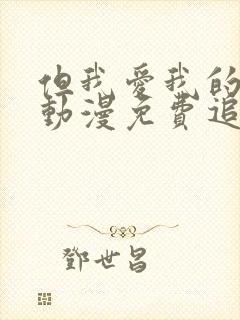 但我愛我的
動漫免費追
鄧世昌